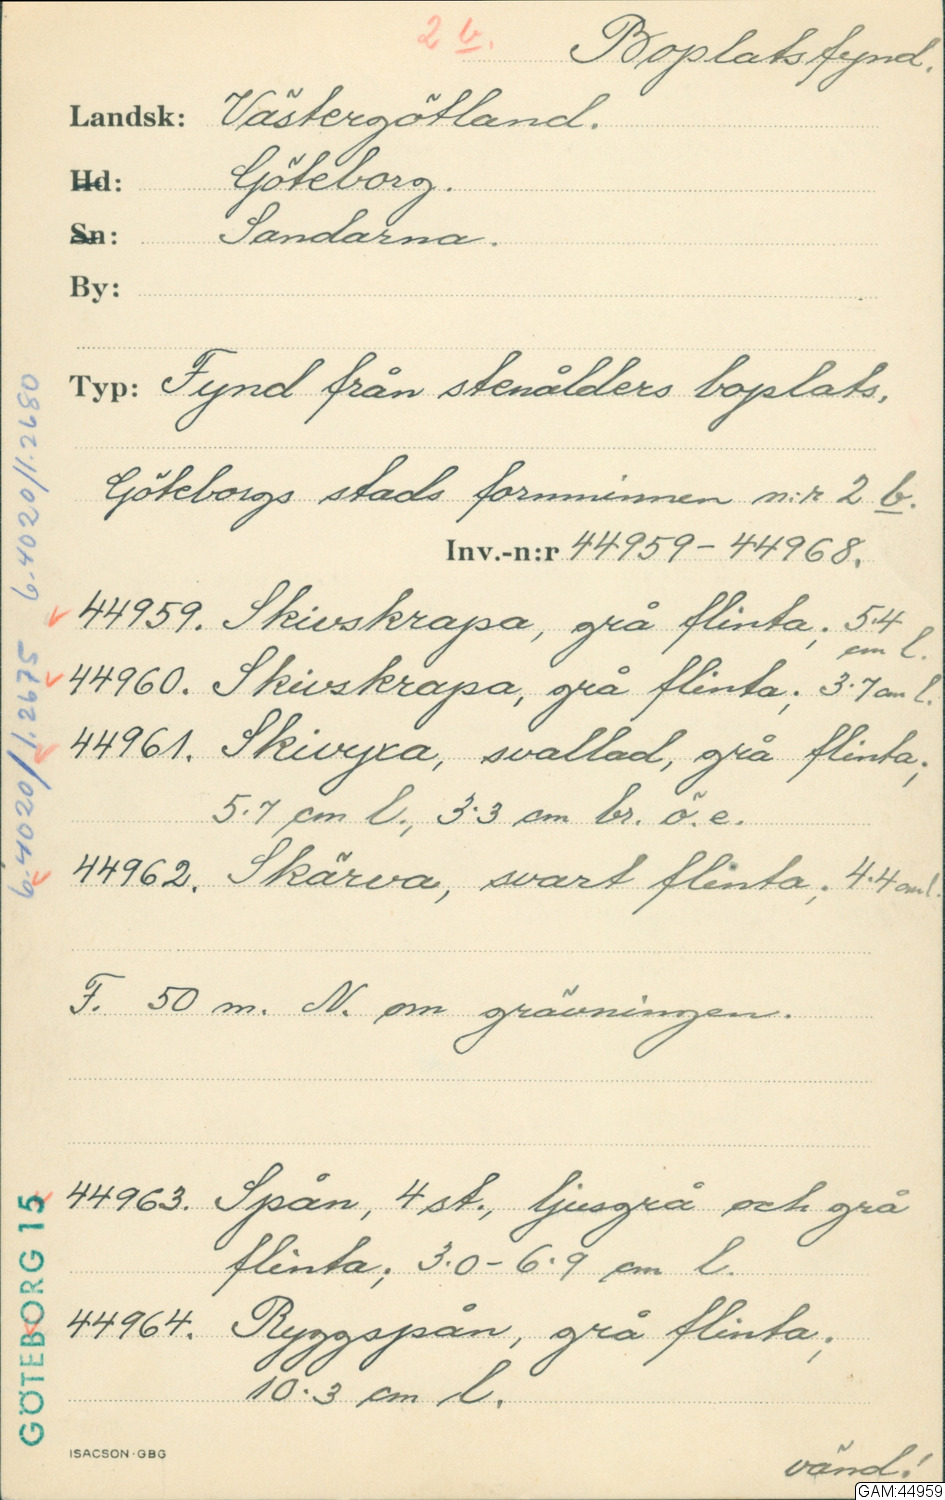 2 b.
Boplatsfynd.
Landsk: Västergötland.
Hd: Göteborg.
Sn: Sandarna.
By:
Typ: Fynd från stenålders boplats,
Göteborgs stads fornminnen n:r 2 b.
Inv.-n:r 44959-44968.
44959. Skivskrapa, grå flinta; 5.4
cm l.
44960. Skivskrapa, grå flinta; 3.7 cm l.
44961. Skivyxa, svallad, grå flinta;
5.7 cm l., 3.3 cm br. ö. e.
44962. Skärva, svart flinta; 4.4 cm l.
F. 50 m. N. om grävningen.
44963. Spån, 4 st., ljusgrå och grå
flinta; 3.0-6.9 cm l.
44964. Ryggspån, grå flinta;
10.3 cm l.
ISACSON·GBG
vänd!
6-4020/1.2675 6-4020/1.2680
GÖTEBORG 15
GAM:44959